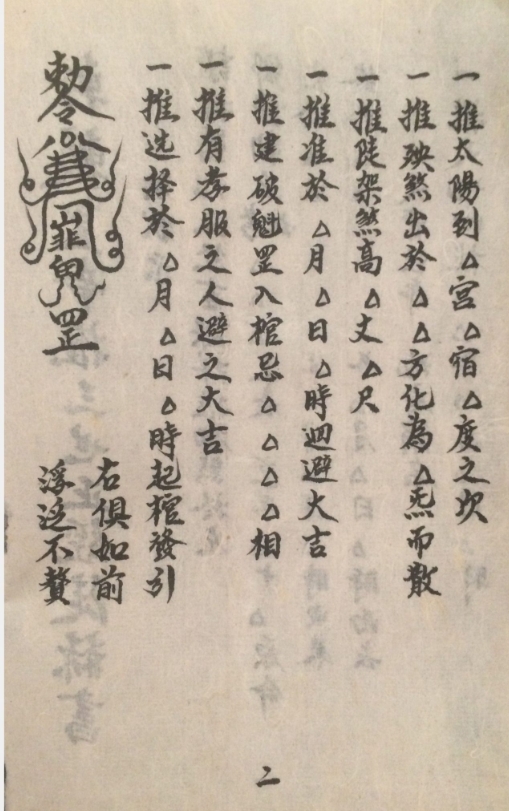 一推太陽到△宮△宿△度之次
一推殃煞出於△△方化為△炁而散
一推陡架煞高△丈△尺
一推准於△月△日△時迴避大吉
一推建破魁罡入棺忌△△△△相
一推有孝服之人避之大吉
一推选择於△月△日△時起棺發引
右俱如前
不贅
勅令
罡
二